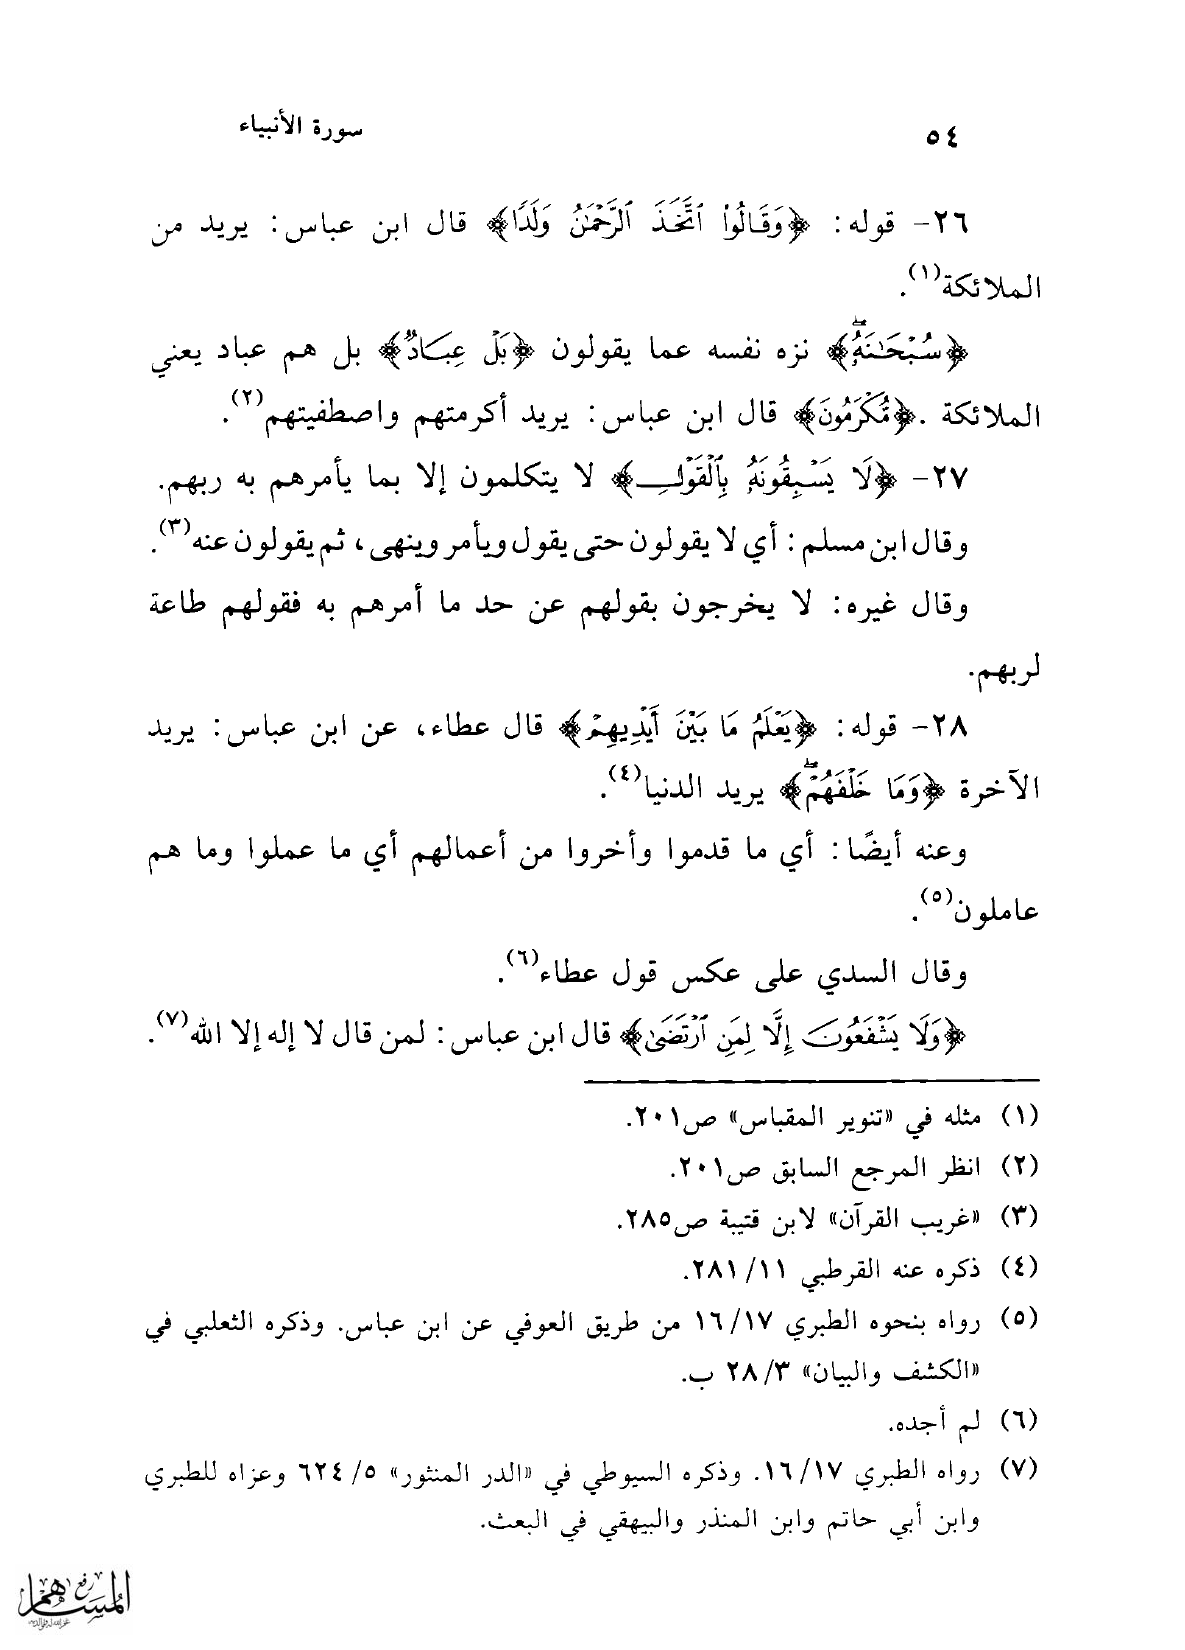 ٥٤ سورة الأنبياء
٢٦- قوله: ﴿وَقَالُوا۟ ٱتَّخَذَ ٱلرَّحْمَٰنُ وَلَدًا﴾ قال ابن عباس: يريد من
الملائكة(١).
﴿سُبْحَٰنَهُۥۖ﴾ نزه نفسه عما يقولون ﴿بَلْ عِبَادٌ﴾ بل هم عباد يعني
الملائكة .﴿مُّكْرَمُونَ﴾ قال ابن عباس: يريد أكرمتهم واصطفيتهم(٢).
٢٧- ﴿لَا يَسْبِقُونَهُۥ بِٱلْقَوْلِ﴾ لا يتكلمون إلا بما يأمرهم به ربهم.
وقال ابن مسلم: أي لا يقولون حتى يقول ويأمر وينهى، ثم يقولون عنه(٣).
وقال غيره: لا يخرجون بقولهم عن حد ما أمرهم به فقولهم طاعة
لربهم.
٢٨- قوله: ﴿يَعْلَمُ مَا بَيْنَ أَيْدِيهِمْ﴾ قال عطاء، عن ابن عباس: يريد
الآخرة ﴿وَمَا خَلْفَهُمْۖ﴾ يريد الدنيا(٤).
وعنه أيضًا: أي ما قدموا وأخروا من أعمالهم أي ما عملوا وما هم
عاملون(٥).
وقال السدي على عكس قول عطاء(٦).
﴿وَلَا يَشْفَعُونَ إِلَّا لِمَنِ ٱرْتَضَىٰ﴾ قال ابن عباس: لمن قال لا إله إلا الله(٧).
(١) مثله في «تنوير المقباس» ص٢٠١.
(٢) انظر المرجع السابق ص٢٠١.
(٣) «غريب القرآن» لابن قتيبة ص٢٨٥.
(٤) ذكره عنه القرطبي ١١/ ٢٨١.
(٥) رواه بنحوه الطبري ١٧/ ١٦ من طريق العوفي عن ابن عباس. وذكره الثعلبي في
«الكشف والبيان» ٣/ ٢٨ ب.
(٦) لم أجده.
(٧) رواه الطبري ١٧/ ١٦. وذكره السيوطي في «الدر المنثور» ٥/ ٦٢٤ وعزاه للطبري
وابن أبي حاتم وابن المنذر والبيهقي في البعث.